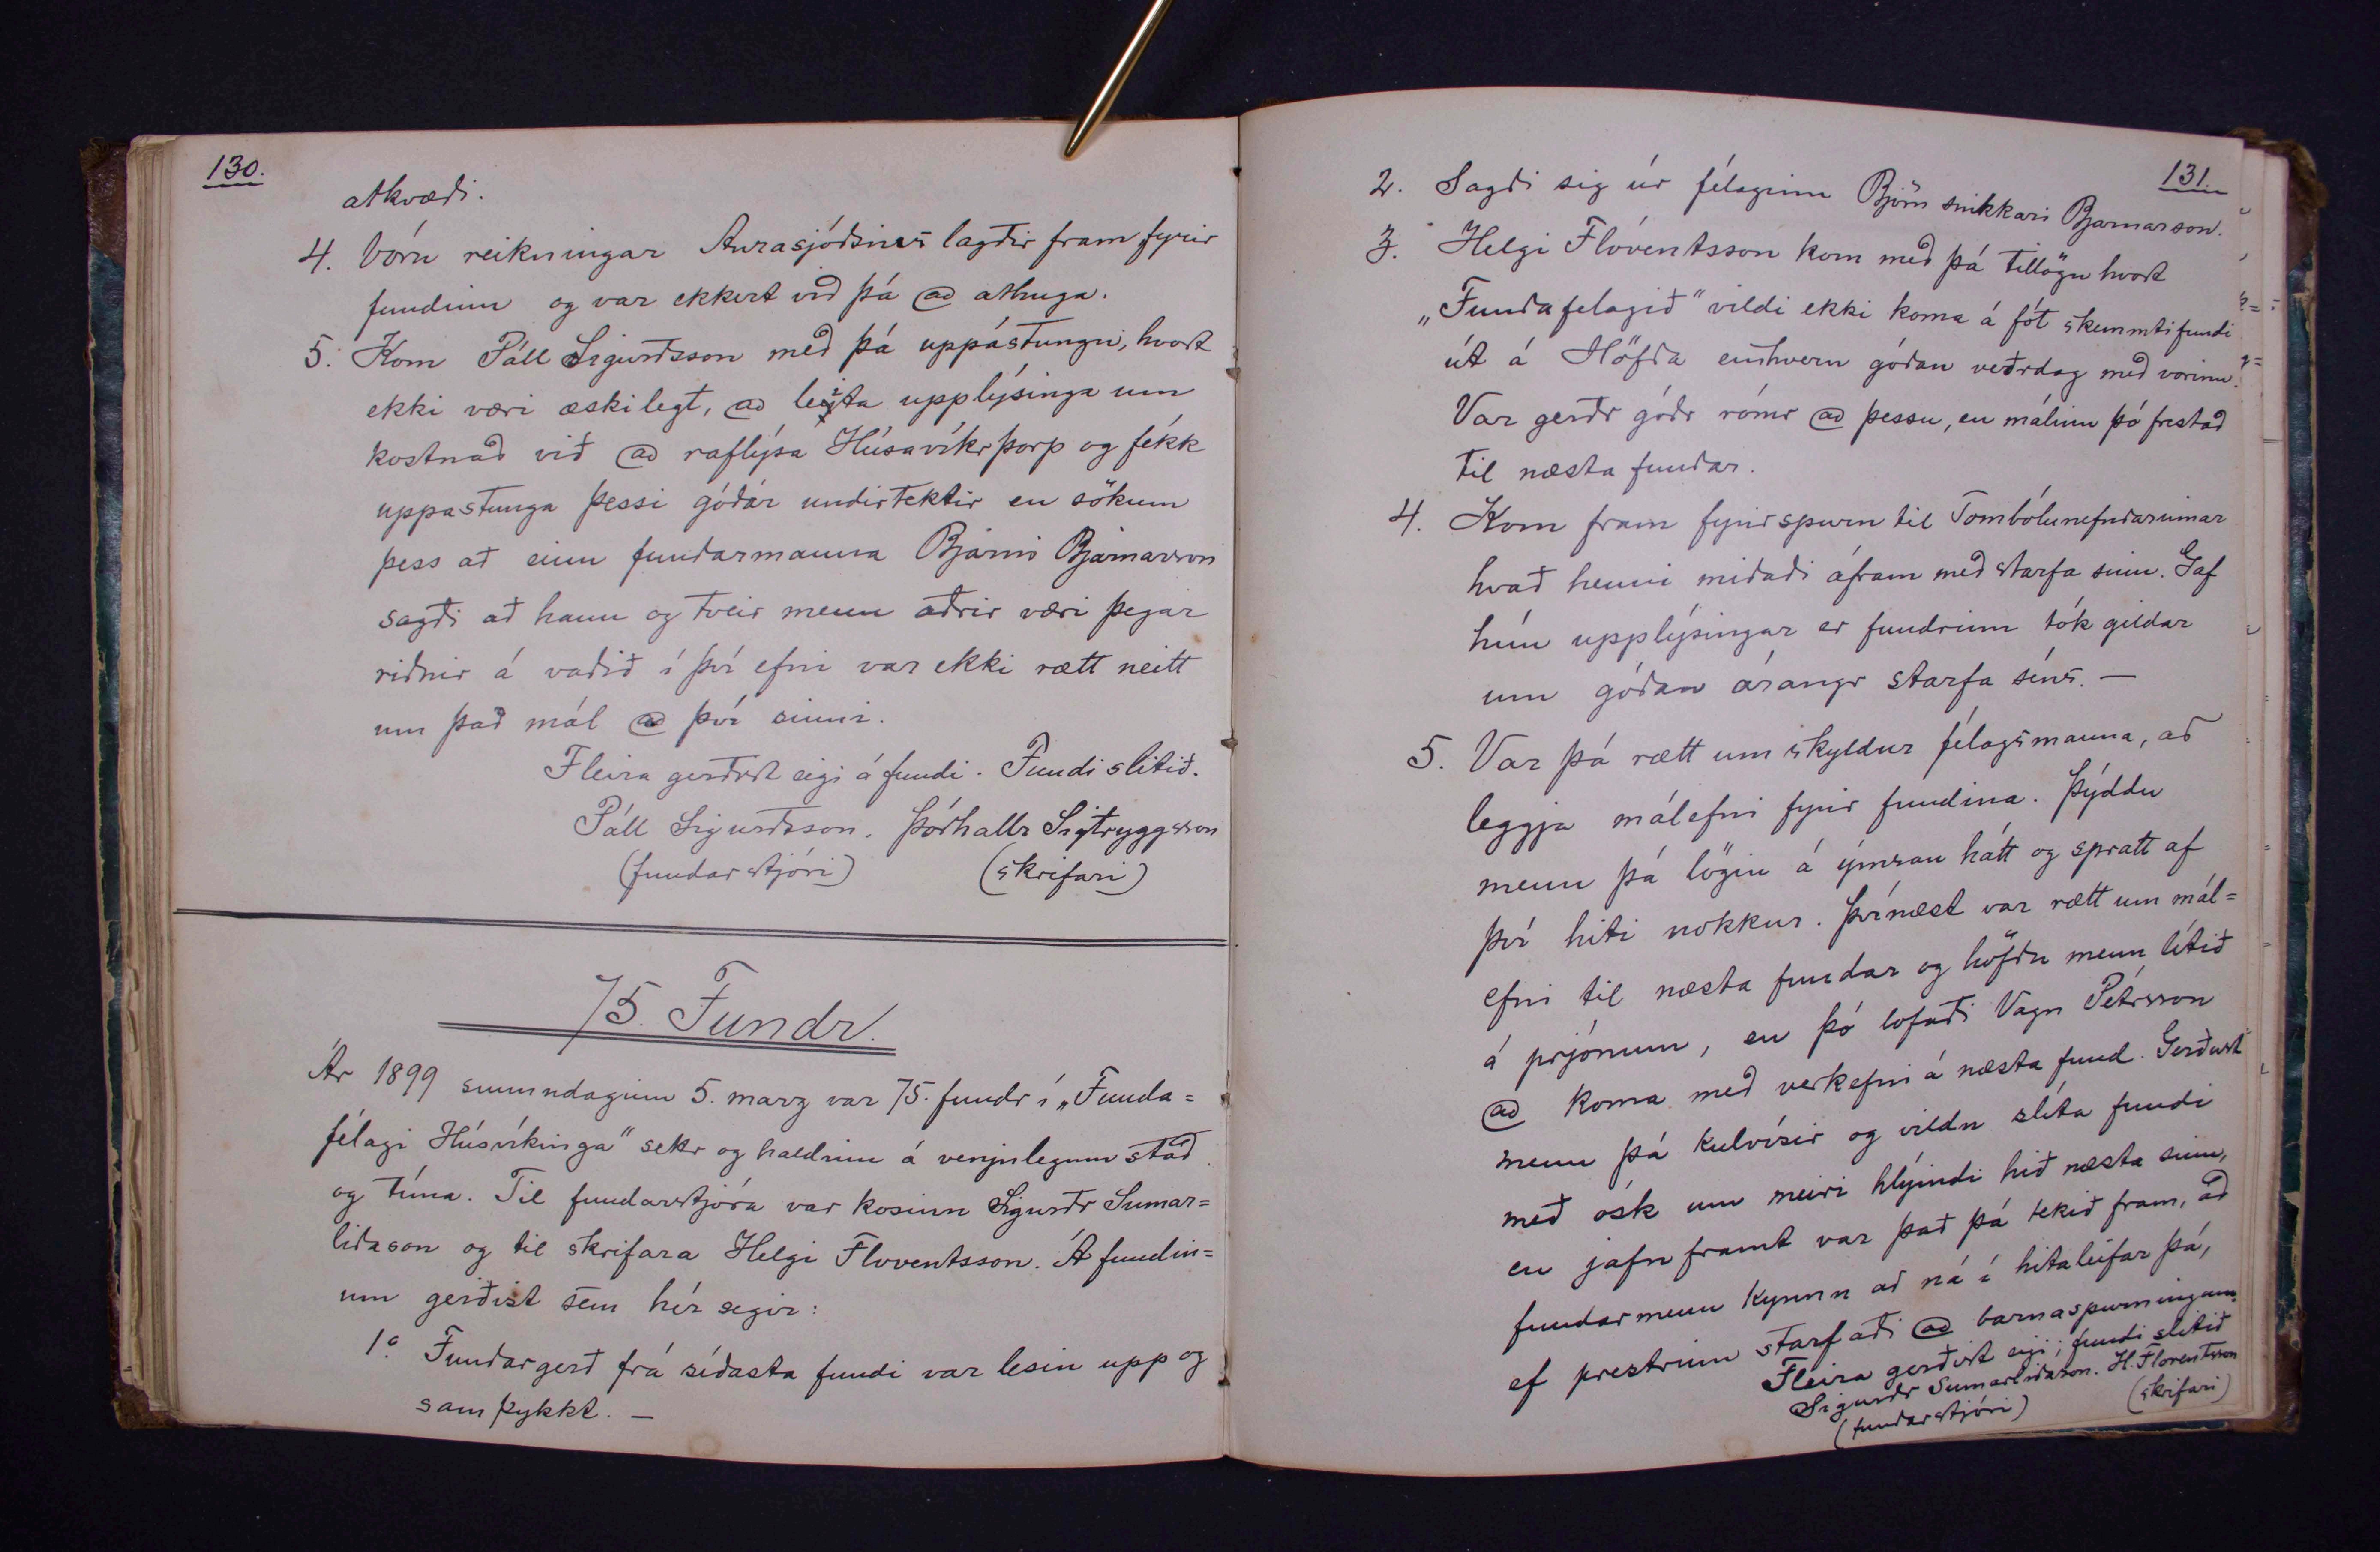 130.
atkvæði.
4. Vóru reikningar Aurasjóðsins lagðir fram fyrir
fundinn og var ekkert við þá að athuga.
5. Kom Páll Sigurðsson með þá uppástungu, hvort
ekki væri æskilegt, að leita upplýsinga um
kostnað við að raflýsa Húsavíkrþorp og fékk
uppastunga þessi góðar undirtektir en sökum
þess að einn fundarmanna Bjarni Bjarnarson
sagði að hann og tveir menn aðrir væri þegar
riðnir á vaðið í því efni var ekki rætt neitt
um það mál að því sinni.
Fleira gerðist eigi á fundi. Fundi slitið.
Páll Sigurðsson. Þórhallr Sigtryggsson
(fundarstjóri) (skrifari)
75. Fundr.
Ár 1899 sunnudaginn 5. marz var 75. fundr í „Funda=
félagi Húsvíkinga" settr og haldinn á venjulegum stað
og tíma. Til fundarstjóra var kosinn Sigurðr Sumar=
liðason og til skrifara Helgi Floventsson. Á fundin=
um gerðist sem hér segir:
1º Fundargerð frá síðasta fundi var lesin upp og
samþykkt. —
131.
2. Sagði sig úr félaginu Björn snikkari Bjarnarson.
3. Helgi Flóventsson kom með þá tillögu hvort
„Fundafelagið" vildi ekki koma á fót skemmtifundi
út á Höfða einhvern góðan veðrdag með vorinu.
Var gerðr góðr rómr að þessu, en málinu þó frestað
til næsta fundar.
4. Kom fram fyrirspurn til Tombólunefndarinnar
hvað henni miðaði áfram með starfa sinn. Gaf
hún upplýsingar er fundrinn tók gildar
um góðan árangr starfa síns. —
5. Var þá rætt um skyldur félagsmanna, að
leggja málefni fyrir fundina. Þýddu
menn þá lögin á ýmsan hátt og spratt af
því hiti nokkur. Þvínæst var rætt um mál=
efni til næsta fundar og höfðu menn lítið
á prjónum, en þó lofaði Vagn Pétrsson
að koma með verkefni á næsta fund. Gerðust
menn þá kulvísir og vildu slíta fundi
með ósk um meiri hlýindi hið næsta sinn,
en jafnframt var það þá tekið fram, að
fundarmenn kynnu að ná í hitaleifar þá,
ef prestrinn starfaði að barnaspurningum.
Fleira gerðist eigi; fundi slitið
Sigurðr Sumarliðason. H. Floventsson
(fundarstjóri) (skrifari)